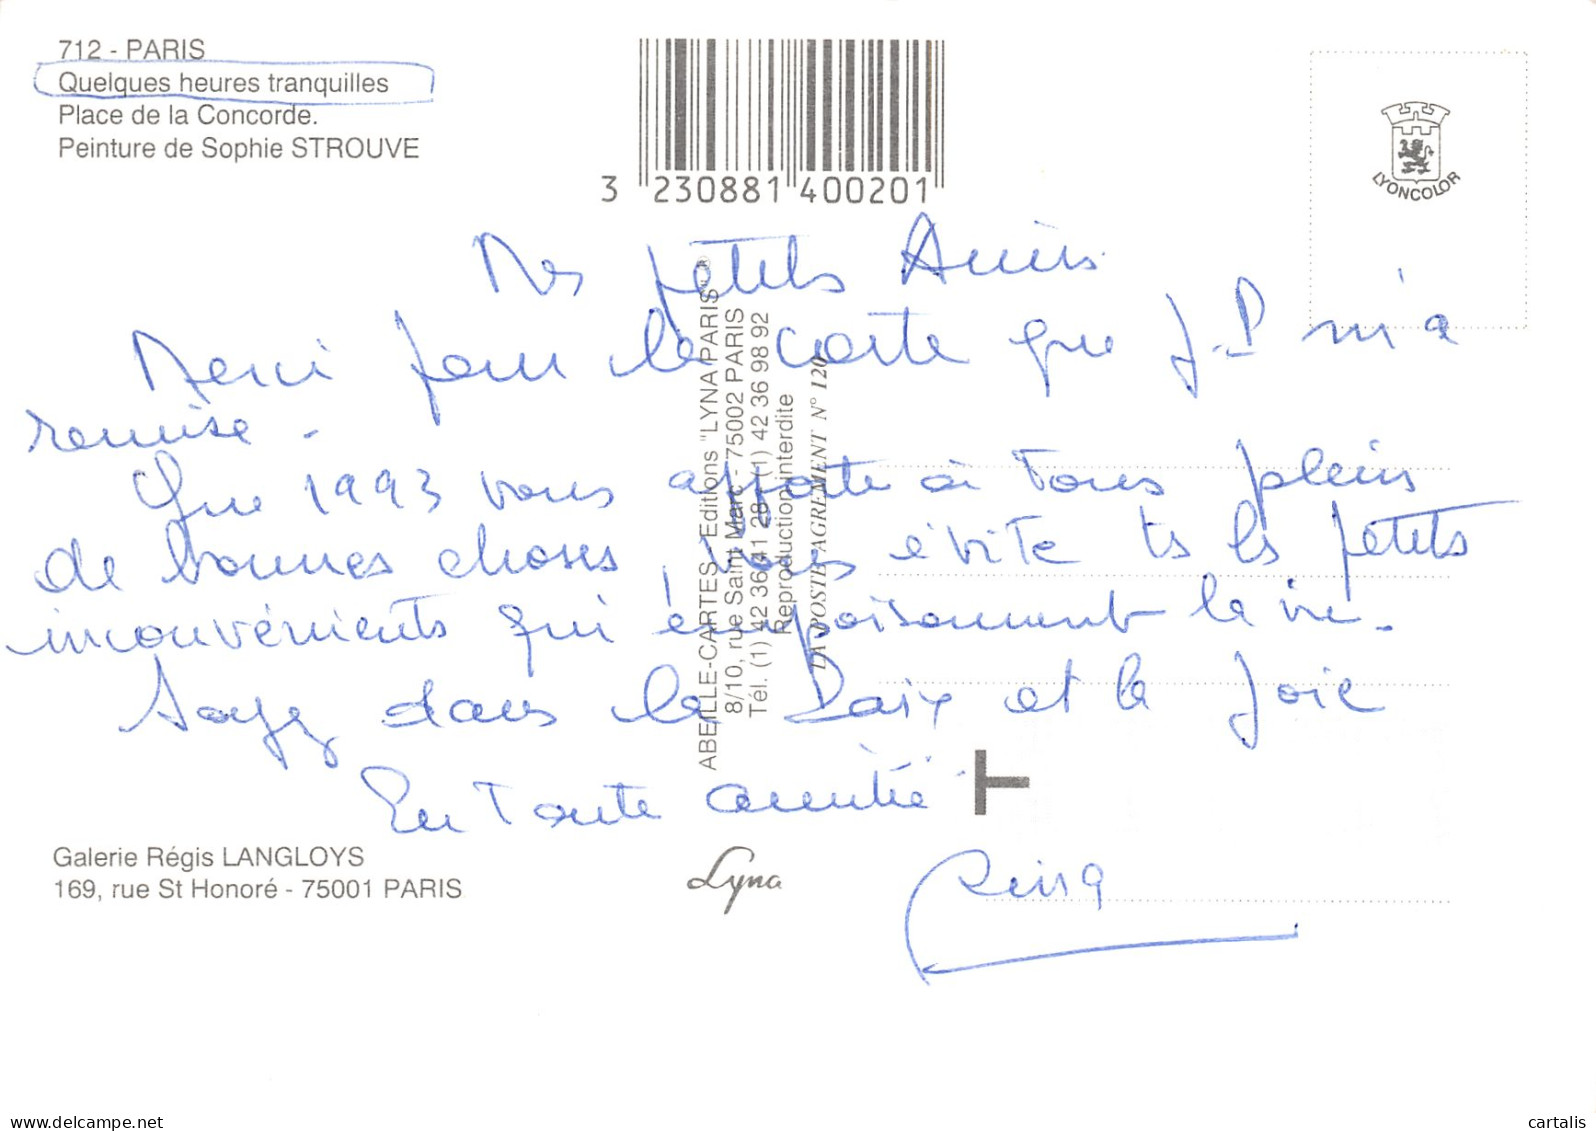 712 - PARIS
Quelques heures tranquilles
Place de la Concorde.
Peinture de Sophie STROUVE
3 230881 400201
LYONCOLOR
Mes petits Amis
Merci pour la carte que J-P m'a
remise -
Que 1993 vous apporte à Tous pleins
de bonnes choses, vous évite ts ls petits
inconvénients qui empoisonnent la vie.
Soyez dans la Paix et la Joie
En Toute amitié
ABEILLE-CARTES - Editions "LYNA PARIS" ®
8/10, rue Saint Marc - 75002 PARIS
Tél. (1) 42 36 41 28 (1) 42 36 98 92
Reproduction interdite
LA POSTE AGREMENT N° 120
T
Galerie Régis LANGLOYS
169, rue St Honoré - 75001 PARIS
Lyna
709411712
cartalis